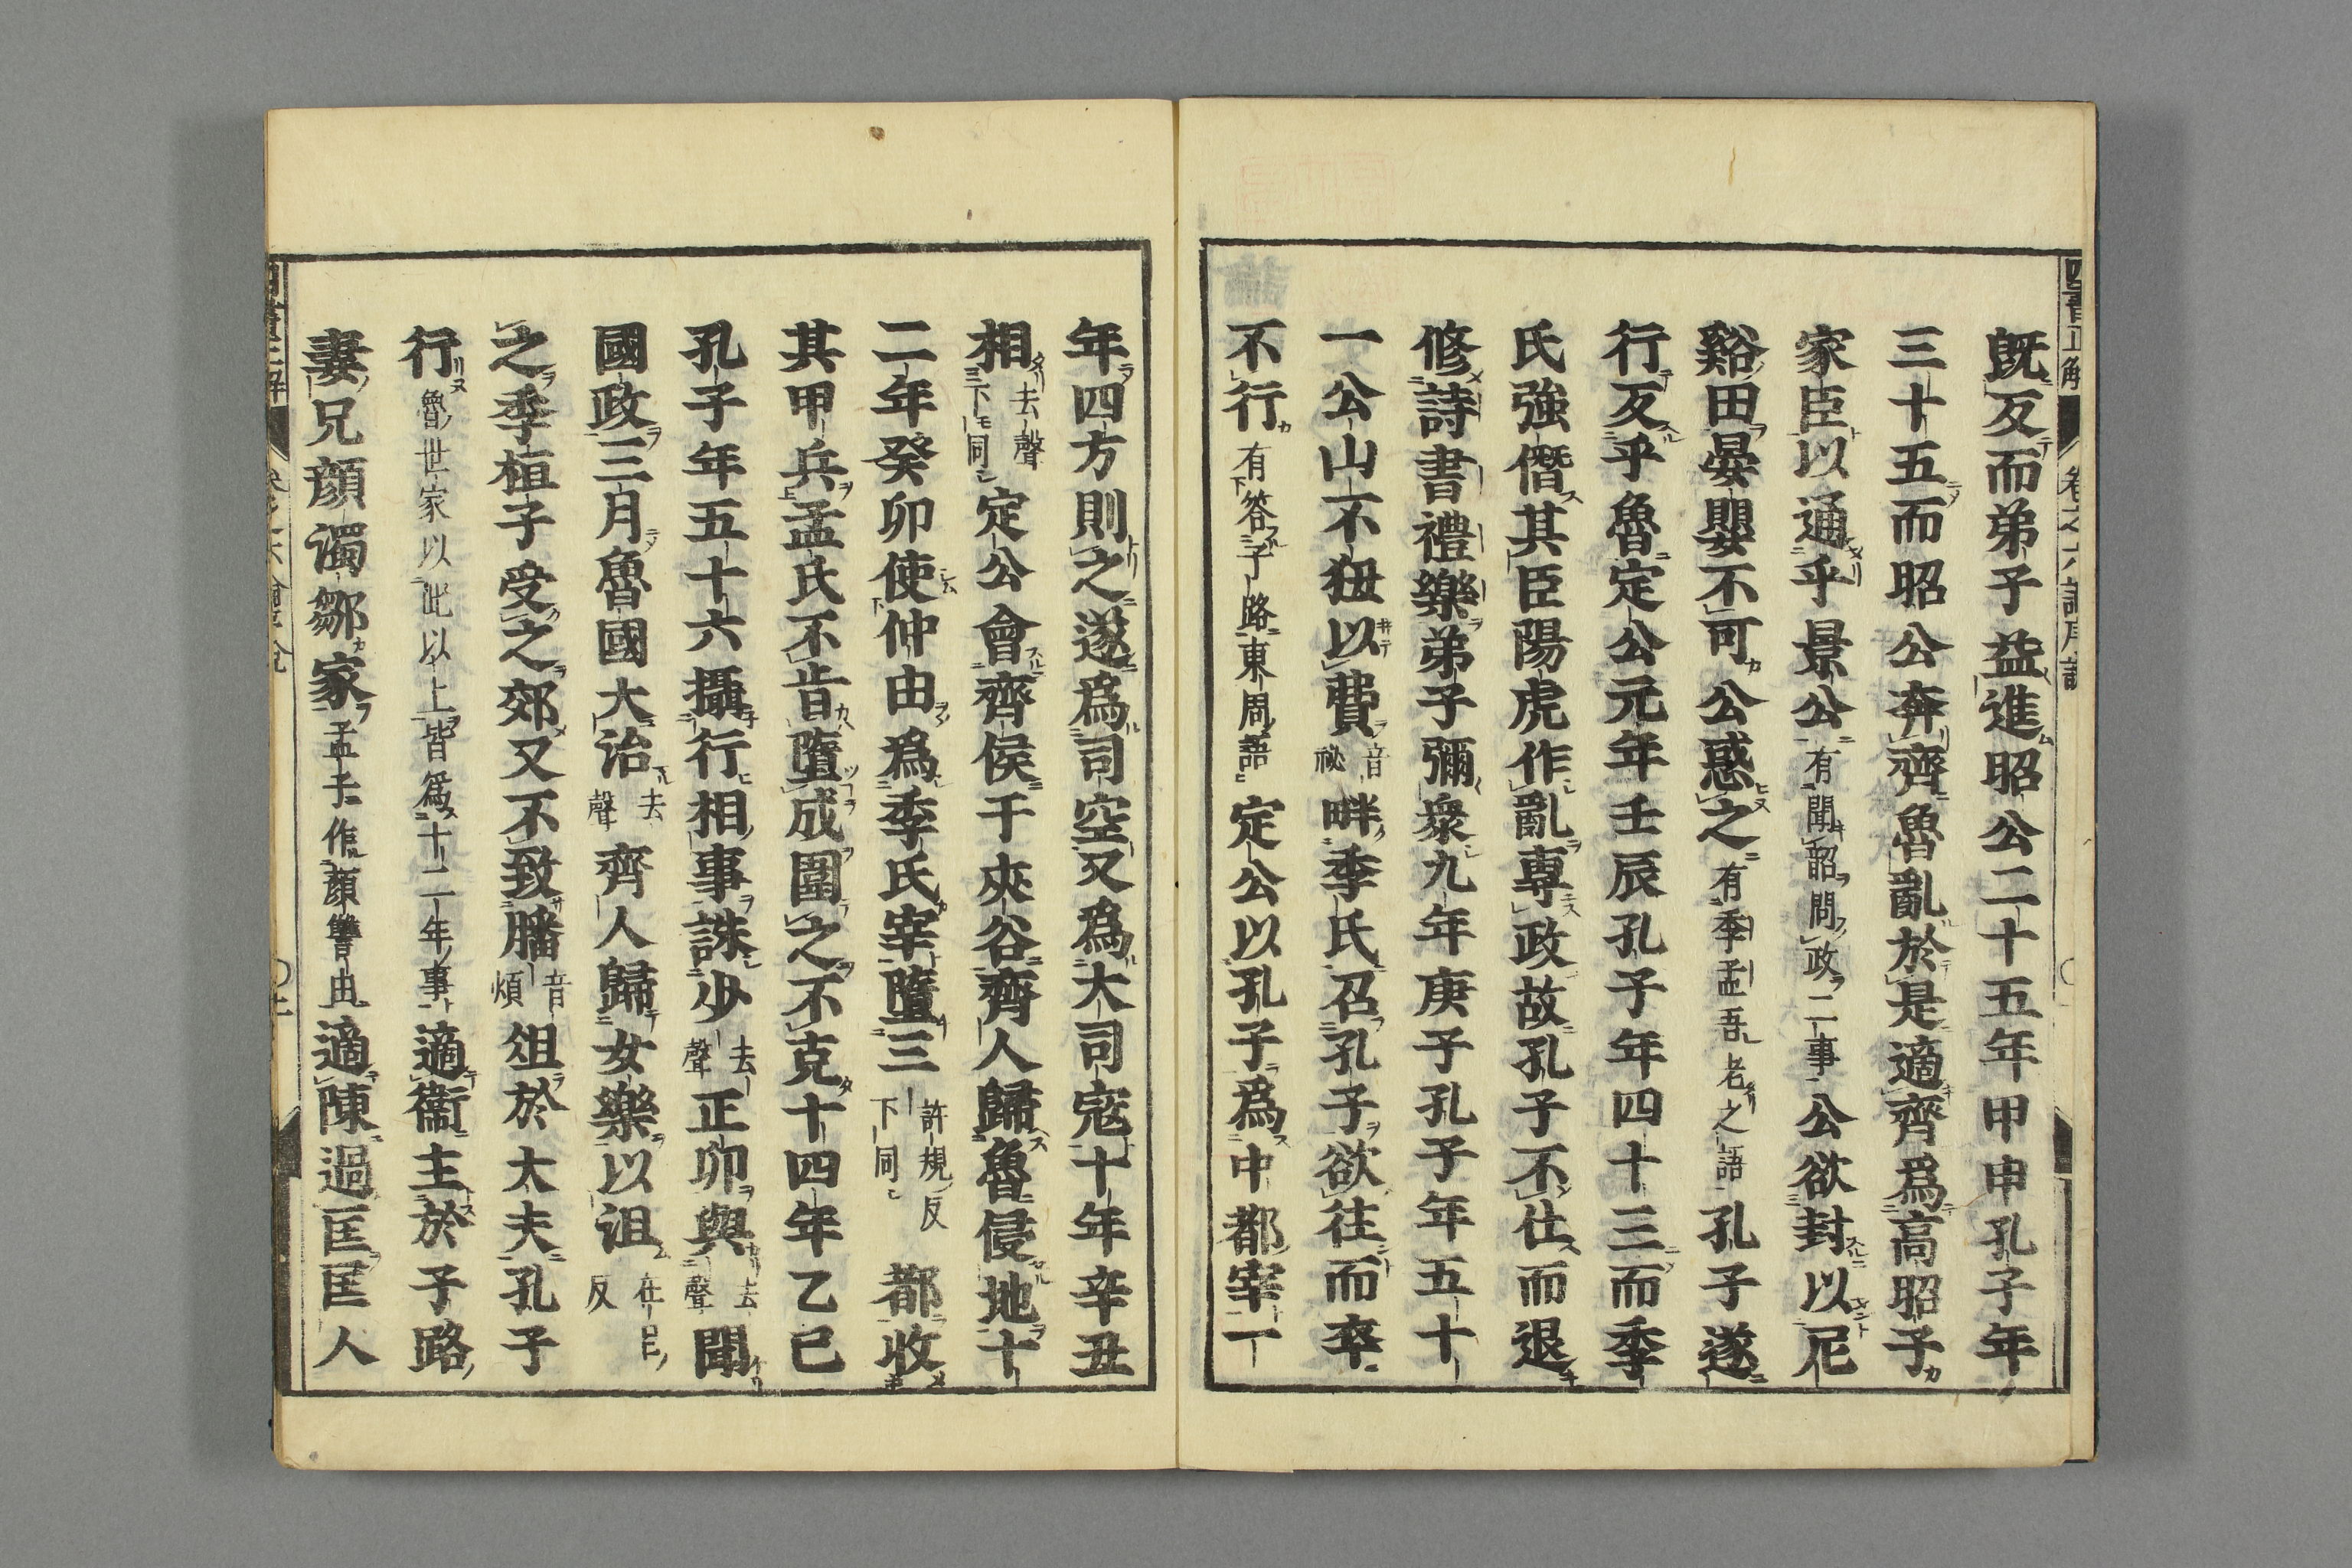 既反而弟子益進昭公二十五年甲申孔子年
三十五而昭公奔齊魯亂於是適齊爲高昭子
家臣以通乎景公有聞韶問政二事公欲封以尼
谿田晏嬰不可公惑之有季孟吾老之語孔子遂
行反乎魯定公元年壬辰孔子年四十三而季
氏強僭其臣陽虎作亂専政故孔子不仕而退
修詩書禮樂弟子彌衆九年庚子孔子年五十
一公山不狃以費音祕畔季氏召孔子欲往而卒
不行有答子路東周語定公以孔子爲中都宰一
年四方則之遂爲司空又爲大司寇十年辛丑
相去聲下同定公會齊侯于夾谷齊人歸魯侵地十
二年癸卯使仲由爲季氏宰墮三許規反下同都收
其甲兵孟氏不肯墮成圍之不克十四年乙巳
孔子年五十六攝行相事誅少去聲正卯與去聲聞
國政三月魯國大治去聲齊人歸女樂以沮在呂反
之季桓子受之郊又不致膰音煩俎於大夫孔子
行魯世家以此以上皆爲十二年事適衞主於子路
妻兄顔濁鄒家孟子作顔讐由適陳過匡匡人